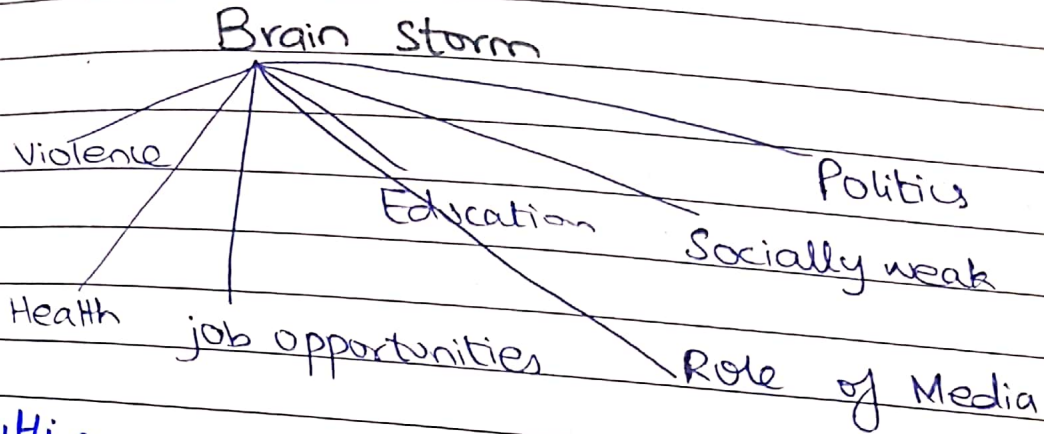 Brain Storm
Violence
Education
Politics
Socially weak
Health
job opportunities
Role of Media
Hi